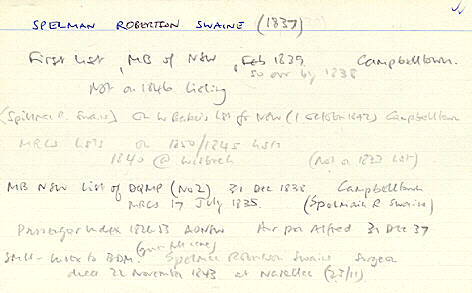 SPELMAN ROBERTSON SWAINE (1837)
First list, MB of NSW, Feb 1839 Campbelltown.
so arr by 1838
Not on 1846 listing
(Spillman R. Swain) On list for NSW (1 October 1842) Campbelltown
MRCS lists on 1850/1845 lists
1840 @ Wisbech (Not on 1833 list)
MB NSW List of DQMP (No2) 31 Dec 1838 Campbelltown
MRCS 17 July 1835. (Spelmain R Swaine)
Passenger Index 1826-53 AONSW Arr per Alfred 31 Dec 37
SMH - Index to BDM. Spelman Robertson Swaine Surgeon
died 22 November 1843 at Narellan (25/11).